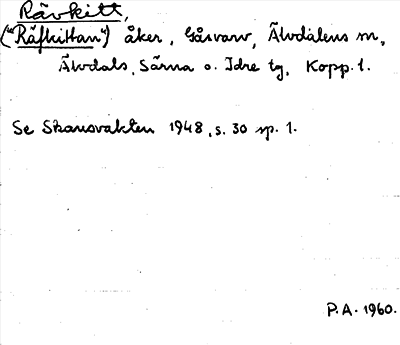 Rävkitt,
("Räfkittan") åker, Gåsvarv, Älvdalens sn,
Älvdals, Särna o. Idre tg, Kopp. l.
Se Skansvakten 1948, s. 30 sp. 1.
P.A. 1960.